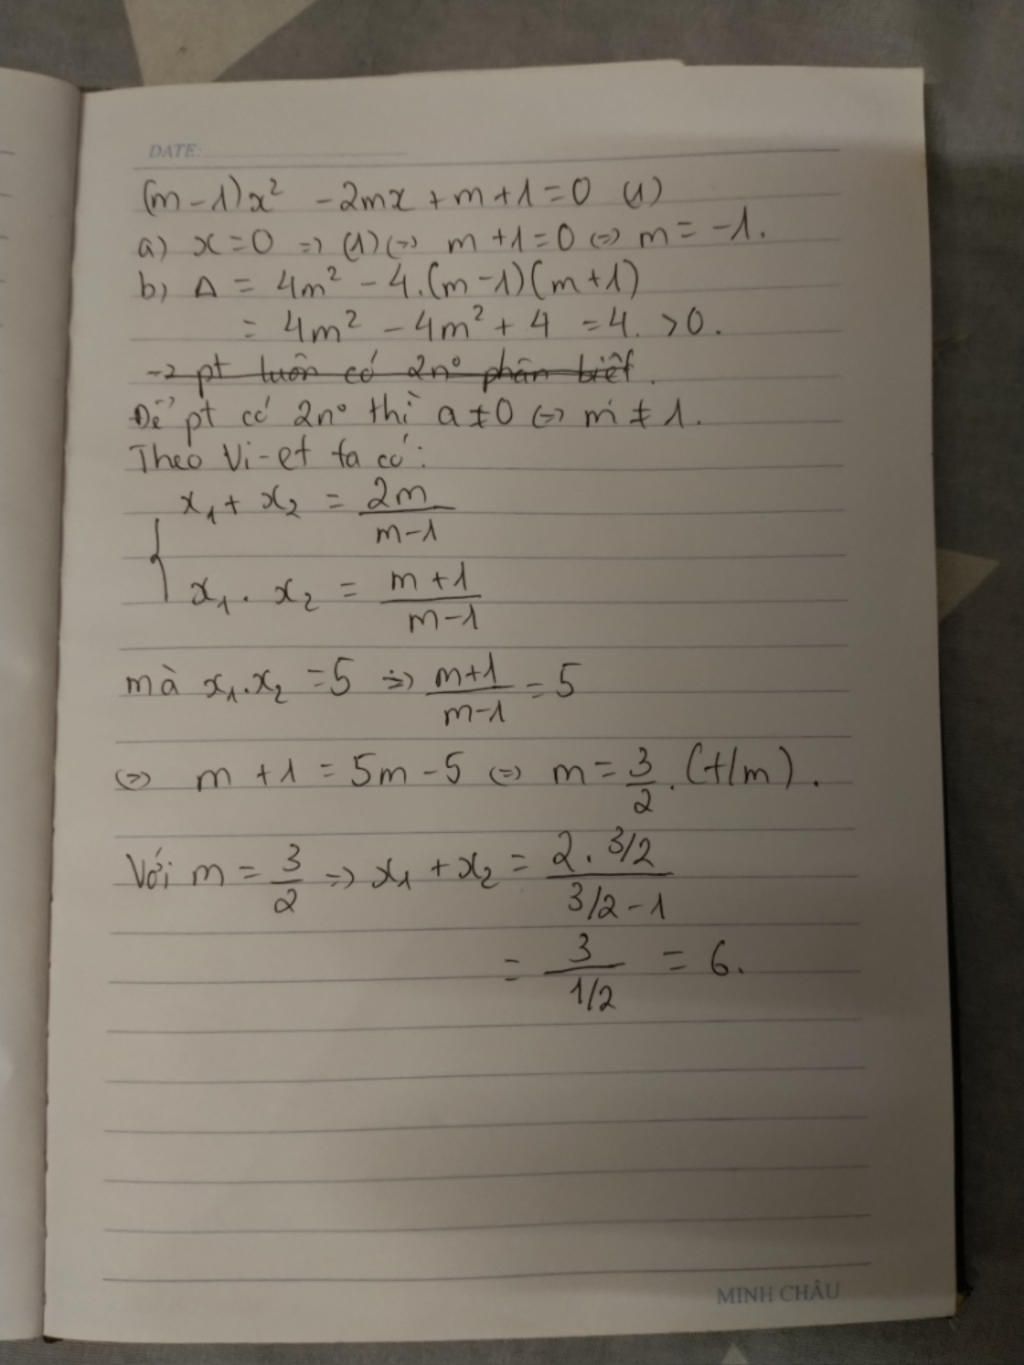 DATE:
(m-1)x² - 2mx + m + 1 = 0 (1)
a) x = 0 => (1) <=> m + 1 = 0 <=> m = -1.
b) Δ = 4m² - 4.(m-1)(m+1)
= 4m² - 4m² + 4 = 4. > 0.
-> pt luôn có 2n° phân biệt.
Để pt có 2n° thì a ≠ 0 <=> m ≠ 1.
Theo Vi-et ta có:
{ x₁ + x₂ = 2m/(m-1)
x₁ . x₂ = (m+1)/(m-1)
mà x₁.x₂ = 5 => (m+1)/(m-1) = 5
<=> m + 1 = 5m - 5 <=> m = 3/2. (t/m).
Với m = 3/2 => x₁ + x₂ = (2 . 3/2)/(3/2 - 1)
= 3/(1/2) = 6.
MINH CHÂU